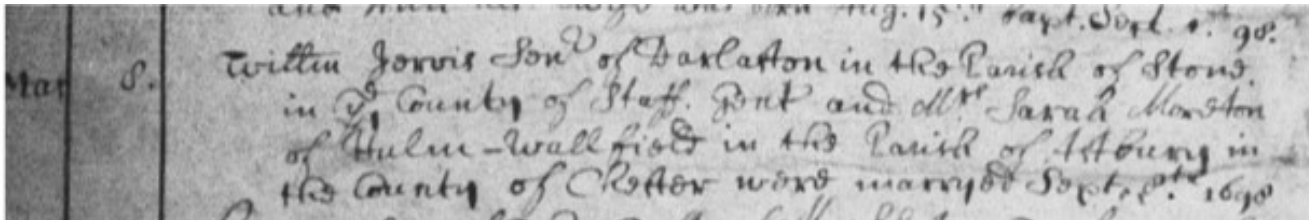 and his wife was born Aug. 15th bapt. Sept. 1. 98.
Mar 8. Willm Jervis Senr of Darlaston in the Parish of Stone
in ye County of Staff. Gent and Mrs Sarah Moreton
of Hulm-Wallfield in the Parish of Astbury in
the County of Chester were marryed Sept. 8th. 1698